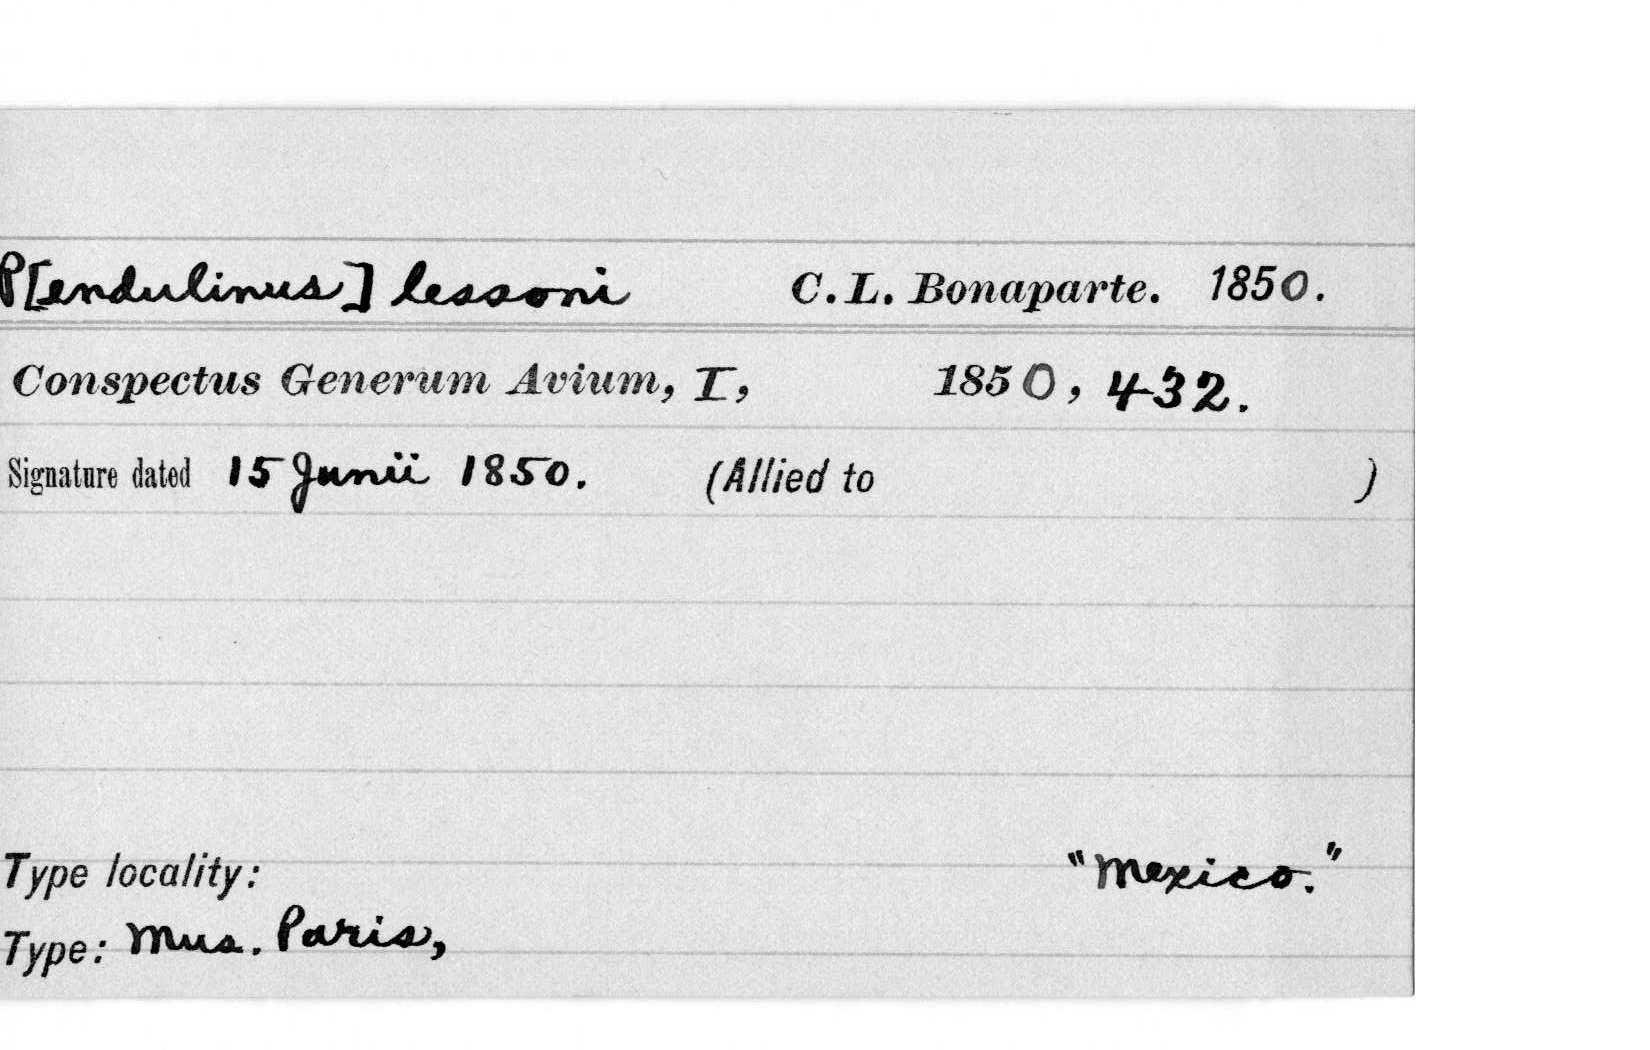 P[endulinus] lessoni C. L. Bonaparte. 1850.
Conspectus Generum Avium, I, 1850, 432.
Signature dated 15 Junii 1850. (Allied to )
Type locality: "Mexico."
Type: Mus. Paris,